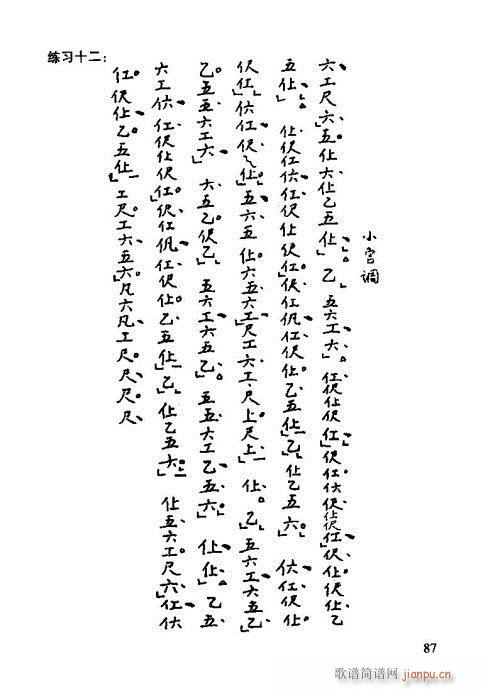 练习十二：
小宫调
六工尺六五仩六仩乙五仩乙 五六工六 仜伬仩伬仜伬仜伬仩伬仜伬仩伬仩乙
五仩 仩伬仜㐲仜伬仩伬仜伬仜仉仜伬仩乙五仩乙仩乙五六 㐲仜伬仩
伬仜㐲仜伬仩五六五仩六五六工尺工六工尺上尺上 仩乙五六工六五乙
乙五五六工六 六五乙伬乙 五六工六五乙 五五六工乙五六 仩仩乙五
六工㐲仜伬仩伬仜伬仜仉仜伬仩乙五仩乙仩乙五六 仩五六工尺六仜㐲
仜伬仩乙五仩工尺工六五六凡六凡工尺尺尺尺
87
歌谱简谱网
jianpu.cn